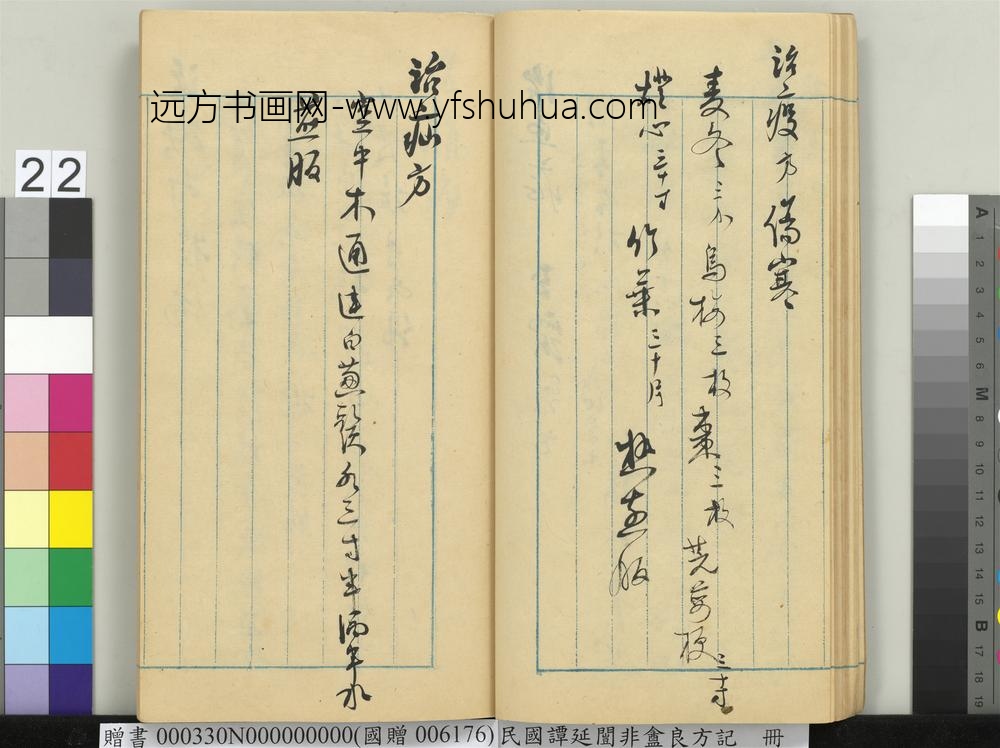 治疫方 傷寒
麦冬三分 烏梅三枚 棗三枚 芫荽梗三寸
燈心三十寸 竹葉三十片
治疝方
木通 連白蔥頭 三寸 半酒半水
煎服
远方书画网-www.yfshuhua.com
22
A 1 2 3 4 5 6 M 8 9 10 11 12 13 14 15 B 17 18 19
贈書 000330N000000000(國贈 006176) 民國譚延闓非盦良方記 冊